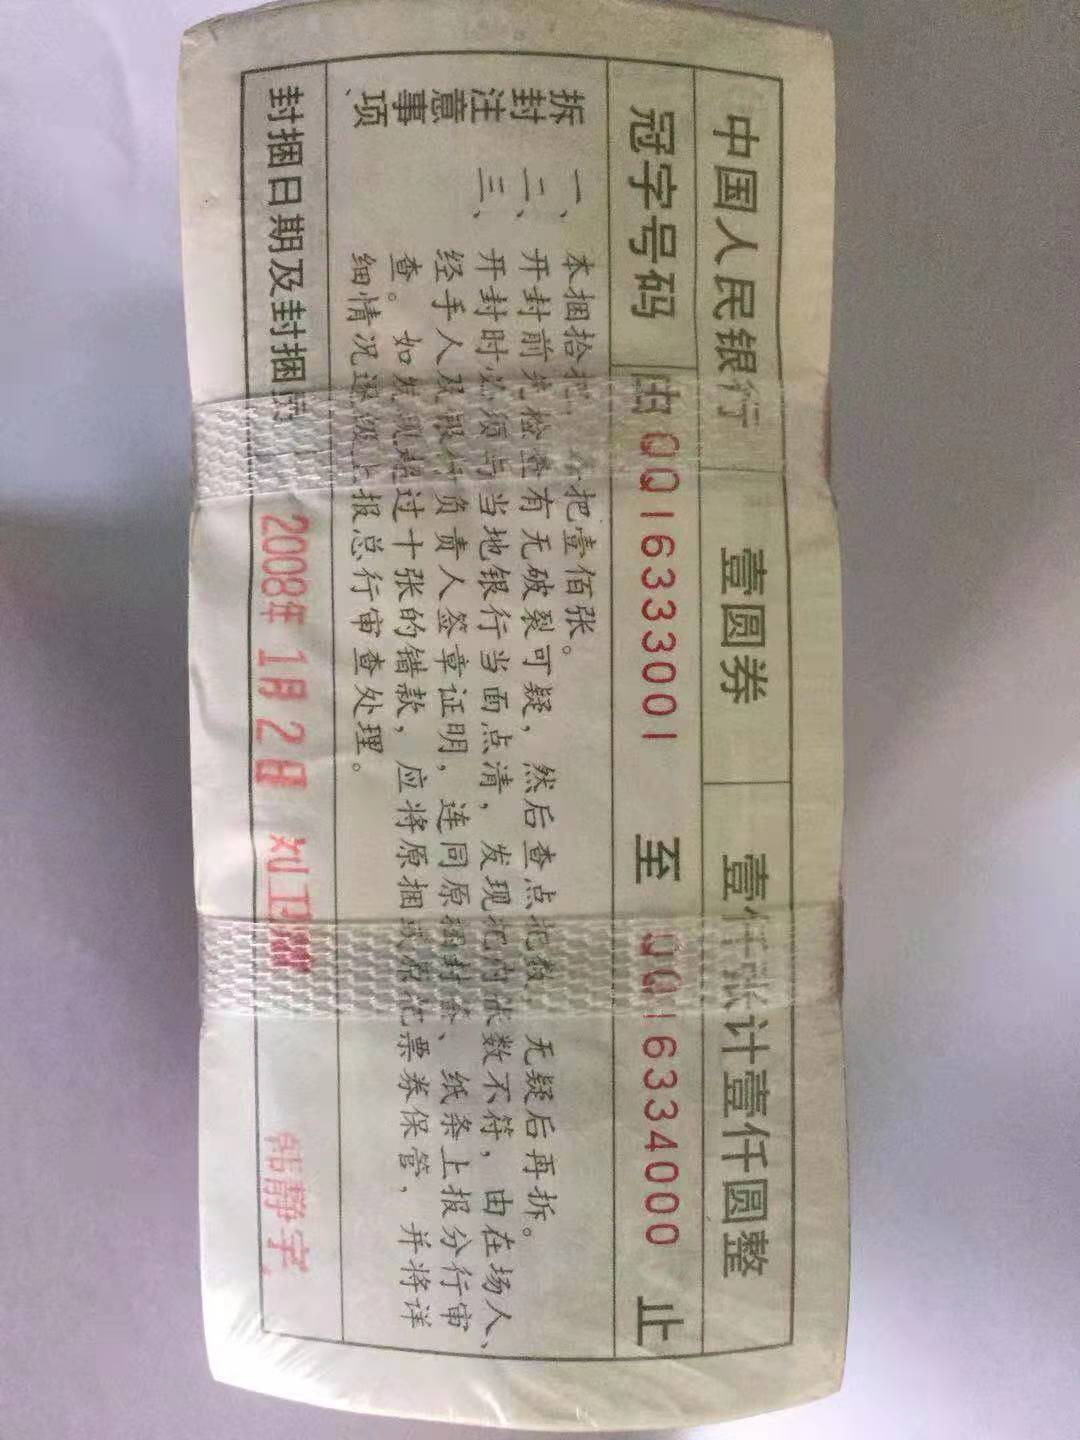 中国人民银行 壹圆券 壹仟张计壹仟圆整
冠字号码 由QQ1633001 至 QQ1634000 止
拆封注意事项
一、本捆拾把,每把壹佰张。
二、开封前先检查有无破裂可疑,然后查点把数,无疑后再拆。
三、开封时必须与当地银行当面点清,发现把内张数不符,由在场人、
经手人及银行负责人签章证明,连同原捆封签、纸条上报分行审
查。如发现超过十张的错款,应将原捆或原把票券保管,并将详
细情况逐级上报总行审查处理。
封捆日期及封捆员 2008年1月2日 刘卫 韩静宇